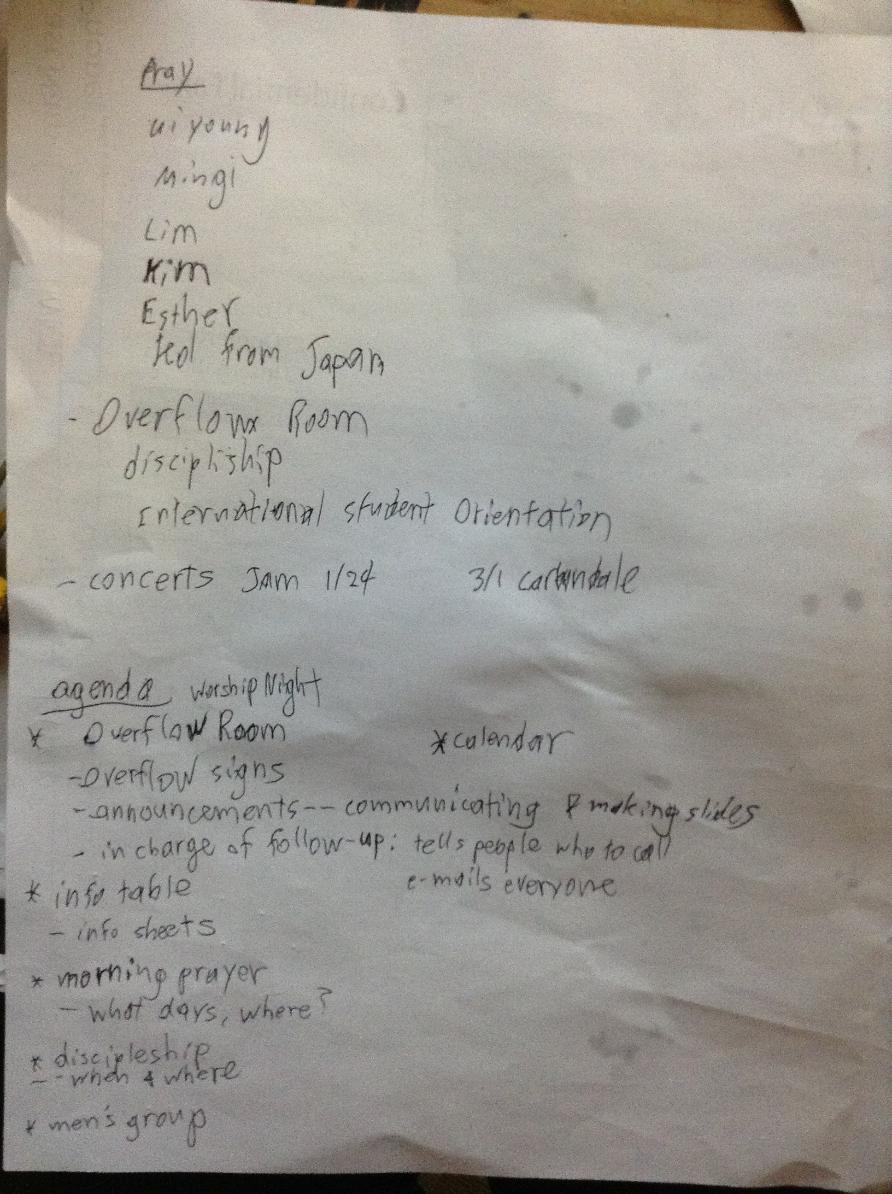 Pray
uiyoung
Mingi
Lim
Kim
Esther
from Japan
- Overflow Room
disciplship
International student Orientation
- concerts Jam 1/24 3/1 carbondale
agenda worship Night
* Overflow Room * calendar
- Overflow signs
- announcements -- communicating & making slides
- in charge of follow-up: tells people who to call
e-mails everyone
* info table
- info sheets
* morning prayer
- what days, where?
* discipleship
-- when & where
* men's group